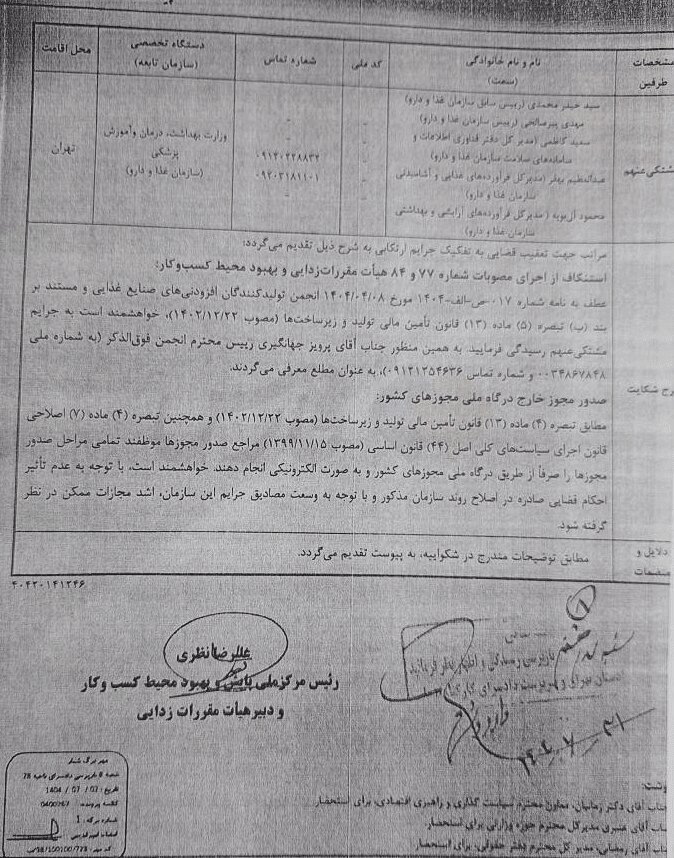 مشخصات طرفین
نام و نام خانوادگی (سمت)
کد ملی
شماره تماس
دستگاه تخصصی (سازمان تابعه)
محل اقامت
مشتکی‌عنهم
سید حیدر محمدی (رییس سابق سازمان غذا و دارو)
مهدی پیرصالحی (رییس سازمان غذا و دارو)
سعید کاظمی (مدیر کل دفتر فناوری اطلاعات و
سامانه‌های سلامت سازمان غذا و دارو)
عبدالعظیم بهفر (مدیرکل فرآورده‌های غذایی و آشامیدنی
سازمان غذا و دارو)
محمود آل‌بویه (مدیرکل فرآورده‌های آرایشی و بهداشتی
سازمان غذا و دارو)
وزارت بهداشت، درمان وآموزش
پزشکی
(سازمان غذا و دارو)
تهران
مراتب جهت تعقیب قضایی به تفکیک جرایم ارتکابی به شرح ذیل تقدیم می‌گردد:
استنکاف از اجرای مصوبات شماره ۷۷ و ۸۴ هیأت مقررات‌زدایی و بهبود محیط کسب‌وکار:
عطف به نامه شماره ۰۱۷-ص-الف-۱۴۰۴ مورخ ۱۴۰۴/۰۴/۰۸ انجمن تولیدکنندگان افزودنی‌های صنایع غذایی و مستند بر
بند (ب) تبصره (۵) ماده (۱۳) قانون تأمین مالی تولید و زیرساخت‌ها (مصوب ۱۴۰۲/۱۲/۲۲)، خواهشمند است به جرایم
مشتکی‌عنهم رسیدگی فرمایید. به همین منظور جناب آقای پرویز جهانگیری رییس محترم انجمن فوق‌الذکر (به شماره ملی
و شماره تماس ۰۹۱۲۱۲۵۴۶۳۶)، به عنوان مطلع معرفی می‌گردند.
شرح شکایت
صدور مجوز خارج درگاه ملی مجوزهای کشور:
مطابق تبصره (۴) ماده (۱۳) قانون تأمین مالی تولید و زیرساخت‌ها (مصوب ۱۴۰۲/۱۲/۲۲) و همچنین تبصره (۴) ماده (۷) اصلاحی
قانون اجرای سیاست‌های کلی اصل (۴۴) قانون اساسی (مصوب ۱۳۹۹/۱۱/۱۵) مراجع صدور مجوزها موظفند تمامی مراحل صدور
مجوزها را صرفاً از طریق درگاه ملی مجوزهای کشور و به صورت الکترونیکی انجام دهند. خواهشمند است، با توجه به عدم تأثیر
احکام قضایی صادره در اصلاح روند سازمان مذکور و با توجه به وسعت مصادیق جرایم این سازمان، اشد مجازات ممکن در نظر
گرفته شود.
دلایل و منضمات
مطابق توضیحات مندرج در شکواییه، به پیوست تقدیم می‌گردد.
۴۰۴۲۰۱۴۱۲۴۶
علیرضا نظری
رئیس مرکز ملی پایش و بهبود محیط کسب و کار
و دبیر هیأت مقررات زدایی
مهر برگ شمار
شعبه 8 بازپرسی دادسرای ناحیه 28
تاریخ : 07 / 07 / 1404
شماره برگه : 1
جناب آقای دکتر رمانیان، معاون محترم سیاست گذاری و راهبری اقتصادی، برای استحضار
جناب آقای عنبری مدیرکل محترم حوزه وزارتی، برای استحضار
جناب آقای رمضانی، مدیر کل محترم دفتر حقوقی، برای استحضار